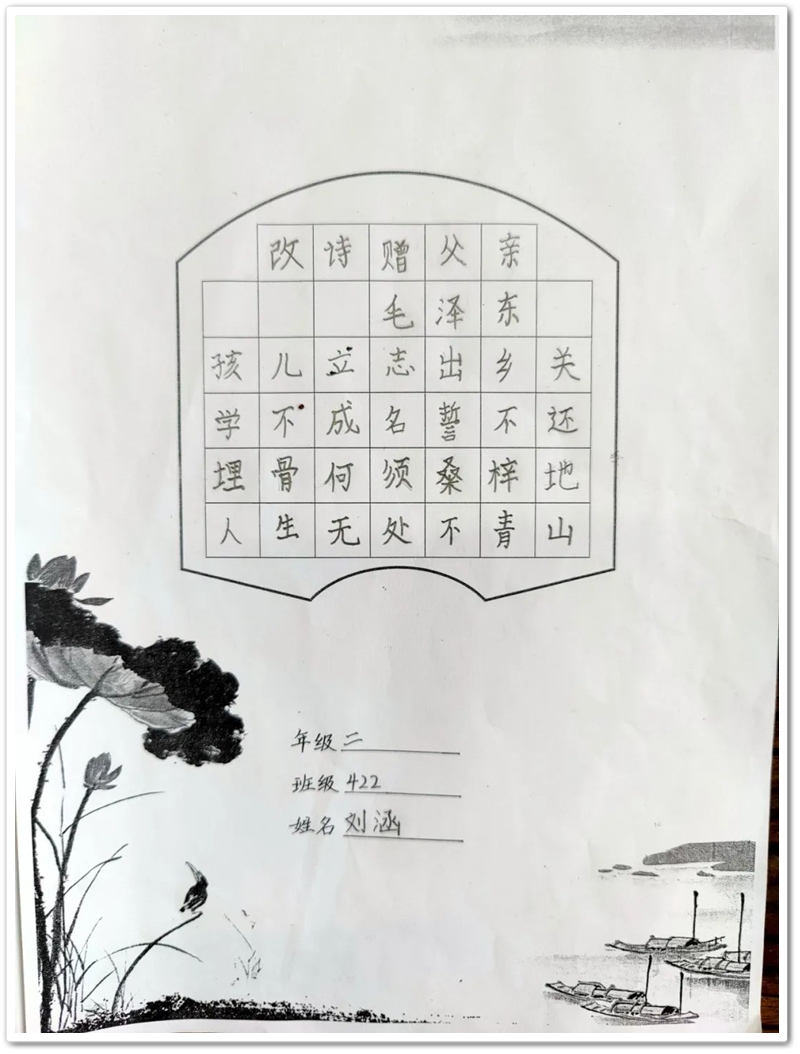 改诗赠父亲
毛泽东
孩儿立志出乡关
学不成名誓不还
埋骨何须桑梓地
人生无处不青山
年级二
班级422
姓名刘涵